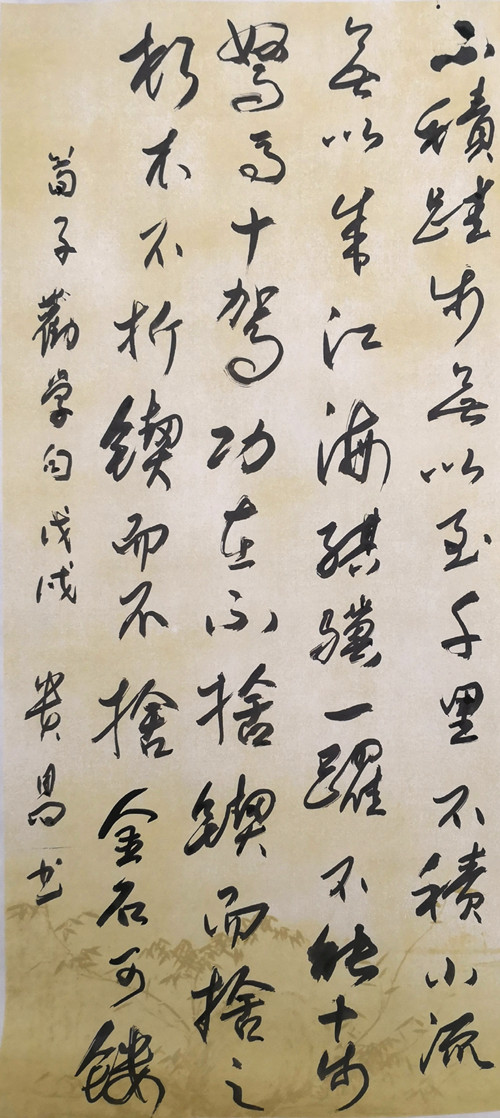 不積跬步無以至千里不積小流
無以成江海騏驥一躍不能十步
駑馬十駕功在不捨鍥而捨之
朽木不折鍥而不捨金石可鏤
荀子勸学句戊戌 貴昌书